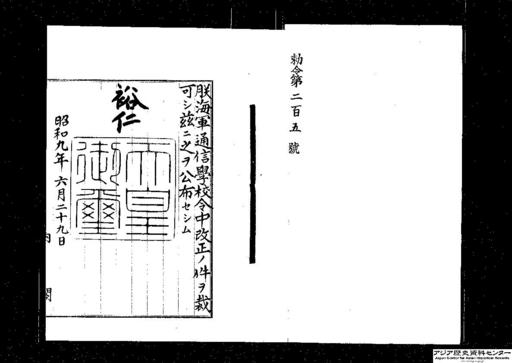 勅令第二百五號
朕海軍通信學校令中改正ノ件ヲ裁
可シ茲ニ之ヲ公布セシム
裕仁
天皇御璽
昭和九年六月二十九日
内閣
アジア歴史資料センター
Japan Center for Asian Historical Records